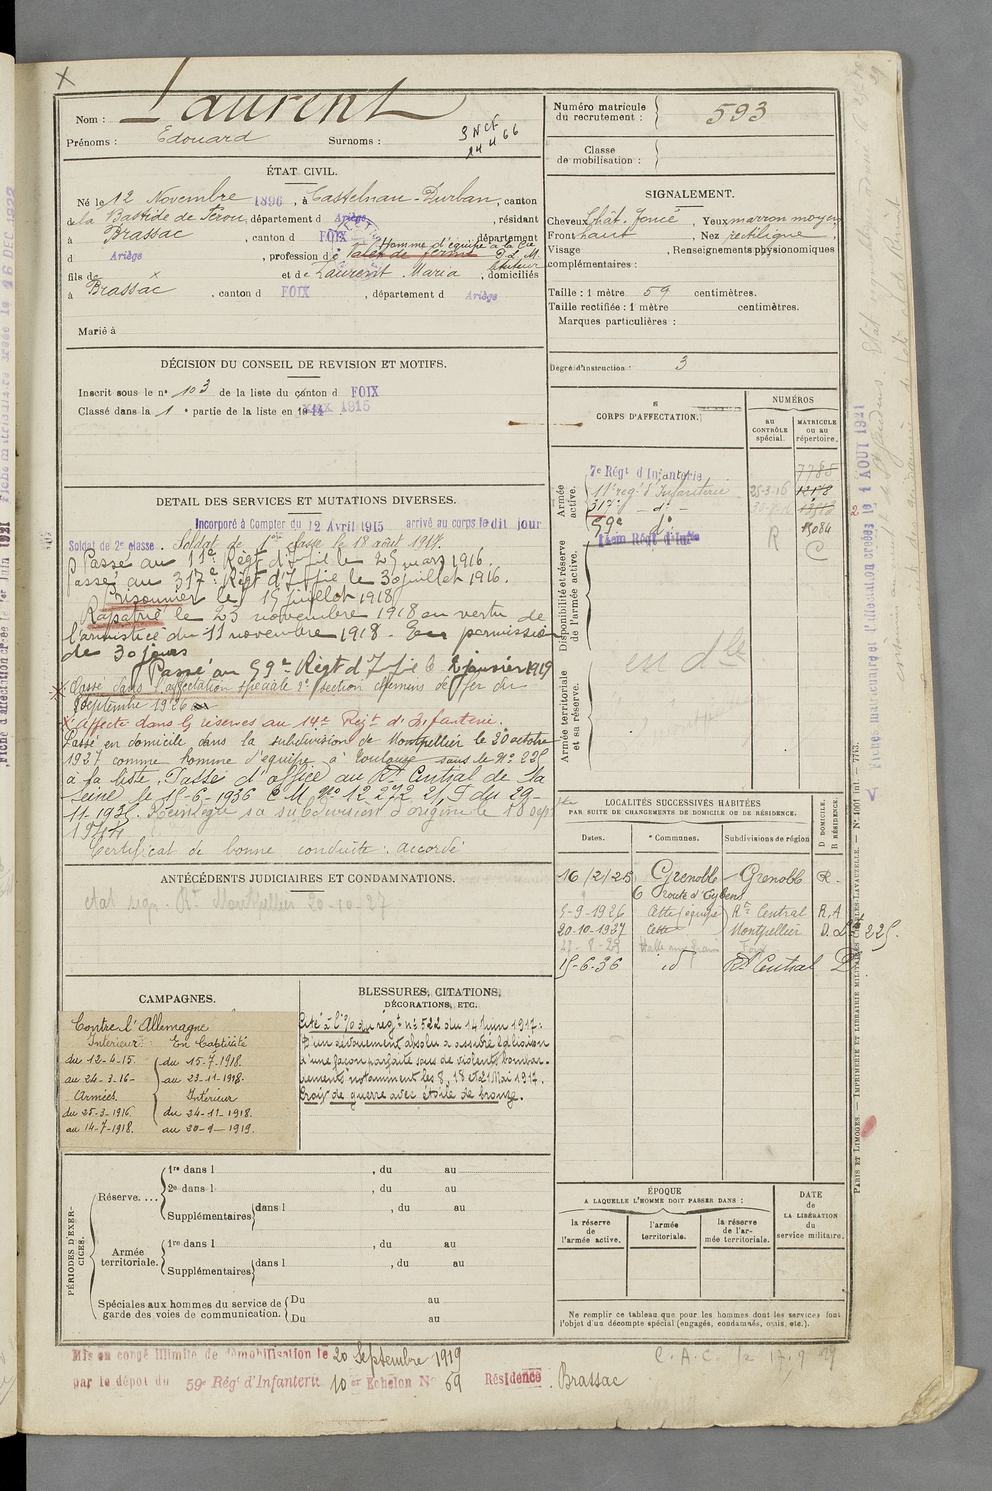 Nom : Laurent
Prénoms : Edouard Surnoms :
Numéro matricule du recrutement : 593
Classe de mobilisation :
ÉTAT CIVIL.
Né le 12 Novembre 1896, à Castelnau-Durban, canton
de la Bastide de Sérou, département d Ariège, résidant
à Brassac, canton d FOIX, département
d Ariège, profession d valet de ferme
Homme d'équipe à la Cie P. L. M.
fils de x et de Laurent Maria, domiciliés
à Brassac, canton d FOIX, département d Ariège
Marié à
SIGNALEMENT.
Cheveux chât. foncé, Yeux marron moyen
Front haut, Nez rectiligne
Visage , Renseignements physionomiques
complémentaires :
Taille : 1 mètre 59 centimètres.
Taille rectifiée : 1 mètre centimètres.
Marques particulières :
Degré d'instruction : 3
DÉCISION DU CONSEIL DE REVISION ET MOTIFS.
Inscrit sous le n° 103 de la liste du canton d FOIX
Classé dans la 1e partie de la liste en 1915
DETAIL DES SERVICES ET MUTATIONS DIVERSES.
Incorporé à Compter du 12 Avril 1915 arrivé au corps le dit jour
Soldat de 2e classe. Soldat de 1ère classe le 18 août 1917.
Passé au 11e Régt d'Infie le 25 mars 1916.
Passé au 317e Régt d'Infie le 30 juillet 1916.
Prisonnier le 15 juillet 1918
Rapatrié le 23 novembre 1918 en vertu de
l'armistice du 11 novembre 1918. En permission
de 30 jours
Passé au 59e Régt d'Infie le 2 janvier 1919
Classé dans l'affectation spéciale 2e section chemins de fer du
septembre 1926
X affecté dans les réserves au 14e Régt d'Infanterie.
Passé en domicile dans la subdivision de Montpellier le 20 octobre
1927 comme homme d'équipe à Toulouse sous le N° 225
à la liste, Passé d'office au Rt Central de la
Seine le 15-6-1936 C M N° 12 272 2/S du 29-
11-1935. Réintègre sa subdivision d'origine le 18 sept
1944
Certificat de bonne conduite : accordé
CORPS D'AFFECTATION.
NUMÉROS
AU CONTRÔLE spécial.
MATRICULE OU AU répertoire.
Armée active.
7e Régt d'Infanterie 7785
11e rég. d'Infanterie 25-3-16 12178
317e -d°-
59e d° 15084
14em Régt d'Infie R C
Disponibilité et réserve de l'armée active.
Armée territoriale et sa réserve.
ANTÉCÉDENTS JUDICIAIRES ET CONDAMNATIONS.
Rt Montpellier 20-10-27
LOCALITÉS SUCCESSIVES HABITÉES
PAR SUITE DE CHANGEMENTS DE DOMICILE OU DE RÉSIDENCE.
Dates. Communes. Subdivisions de région D DOMICILE. R RÉSIDENCE.
16/2/25 Grenoble Grenoble R.
6 route d'Eybens
5-9-1926 Cette (équipe) Rt Central R.A
20-10-1937 Cette Montpellier D. 225.
15-6-36 id Rt Central D
CAMPAGNES.
Contre l'Allemagne
Intérieur : En Captivité
du 12-4-15. du 15-7-1918.
au 24-3-16- au 23-11-1918.
Armées Intérieur
du 25-3-1916. du 24-11-1918.
au 14-7-1918. au 20-9-1919.
BLESSURES, CITATIONS,
DÉCORATIONS, ETC.
Cité à l'O/ du régt n° 522 du 14 Juin 1917 :
D'un dévouement absolu a assuré la liaison
d'une façon parfaite sous de violents bombar-
dements notamment les 8, 18 et 21 Mai 1917.
Croix de guerre avec étoile de bronze.
PÉRIODES D'EXERCICES.
Réserve.... 1re dans l , du au
2e dans l , du au
Supplémentaires dans l , du au
Armée territoriale. 1re dans l , du au
Supplémentaires dans l , du au
Spéciales aux hommes du service de garde des voies de communication. Du au
Du au
ÉPOQUE
A LAQUELLE L'HOMME DOIT PASSER DANS :
la réserve de l'armée active. l'armée territoriale. la réserve de l'armée territoriale.
DATE de LA LIBÉRATION du service militaire.
Ne remplir ce tableau que pour les hommes dont les services font
l'objet d'un décompte spécial (engagés, condamnés, omis, etc.).
Mis en congé illimité de démobilisation le 20 Septembre 1919
par le dépôt du 59e Régt d'Infanterie 10er Echelon N° 69 Résidence Brassac
PARIS ET LIMOGES. — IMPRIMERIE ET LIBRAIRIE MILITAIRES CHARLES-LAVAUZELLE. — N° 1001 int. — 7743.